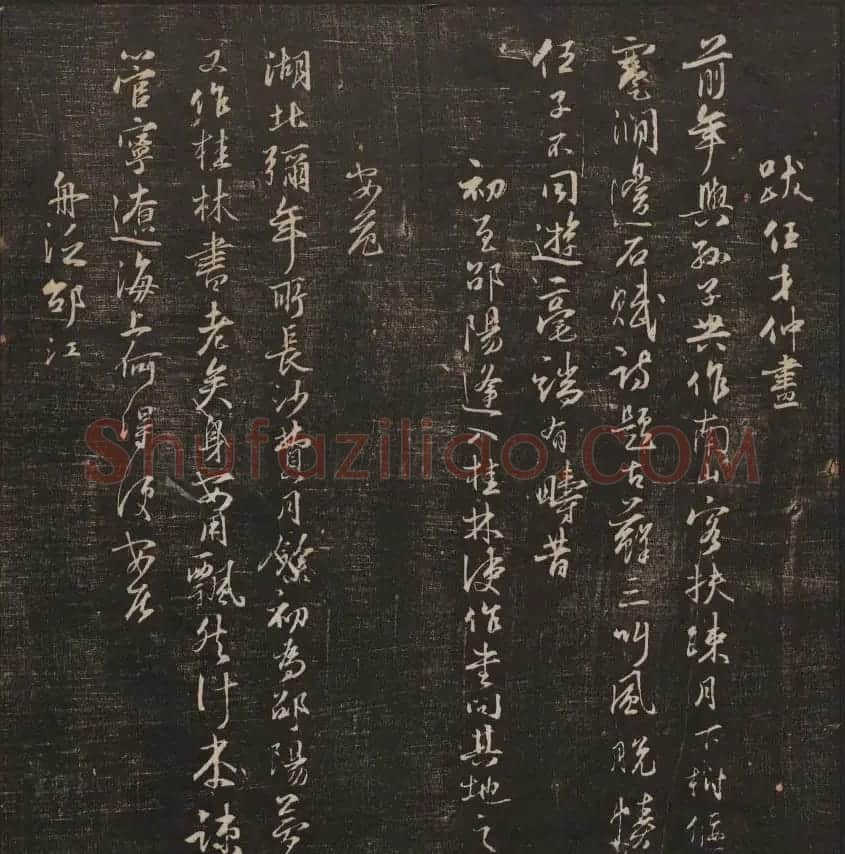 跋任才仲畫
前年與孫子共作南山客扶疎月下樹偃
蹇澗邊石賦詩題古蘚三叫風脫幘
任子不同遊毫端有疇昔
初至邵陽逢入桂林使作書問其地之
安危
湖北彌年所長沙費月餘初為邵陽夢
又作桂林書老矣身安用飄然計本疎
管寧遼海上何得便安居
舟泛邵江
Shufaziliao.COM